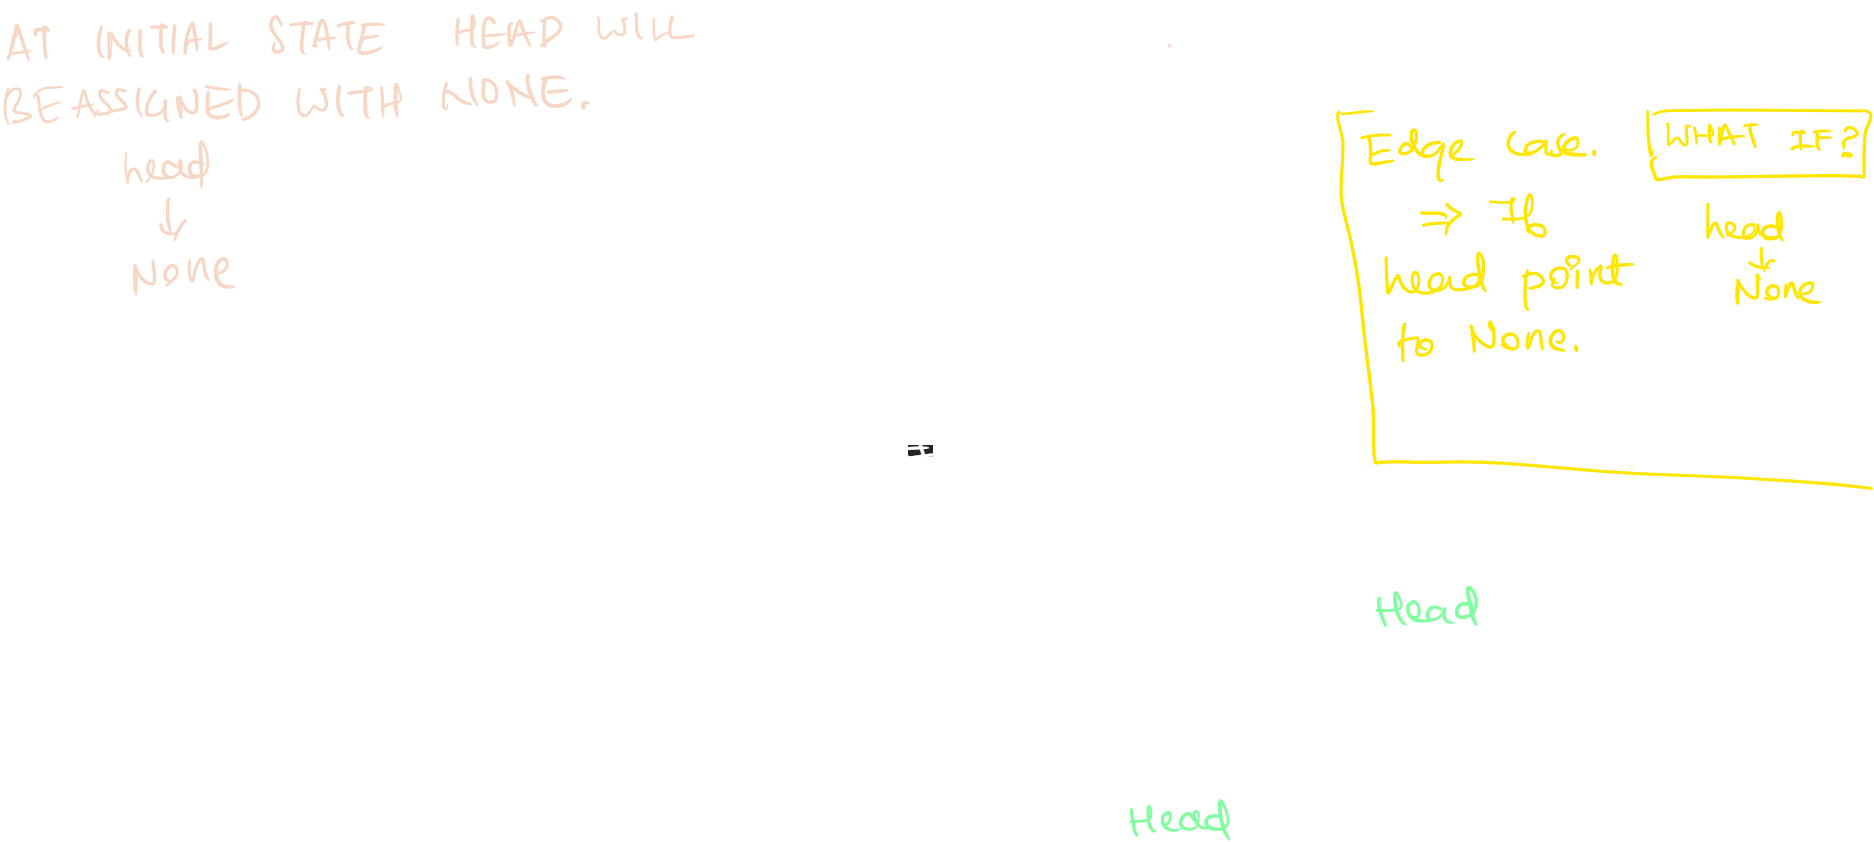 AT INITIAL STATE HEAD WILL
BE ASSIGNED WITH NONE.
head
↓
None
Edge case.
⇒ If
head point
to None.
WHAT IF?
head
↓
None
Head
Head